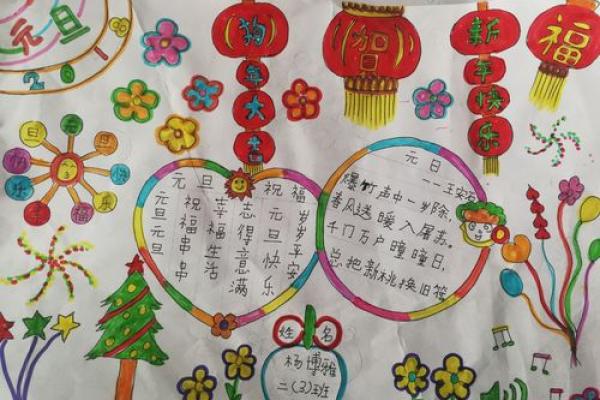 元旦
2018
狗年大吉
贺
新年快乐
福
元旦祝福
元旦元旦
祝福串串
幸福生活
志得意满
元旦快乐
岁岁平安
元日
——王安石
爆竹声中一岁除,
春风送暖入屠苏。
千门万户曈曈日,
总把新桃换旧符
姓名
杨博雅
二(3)班